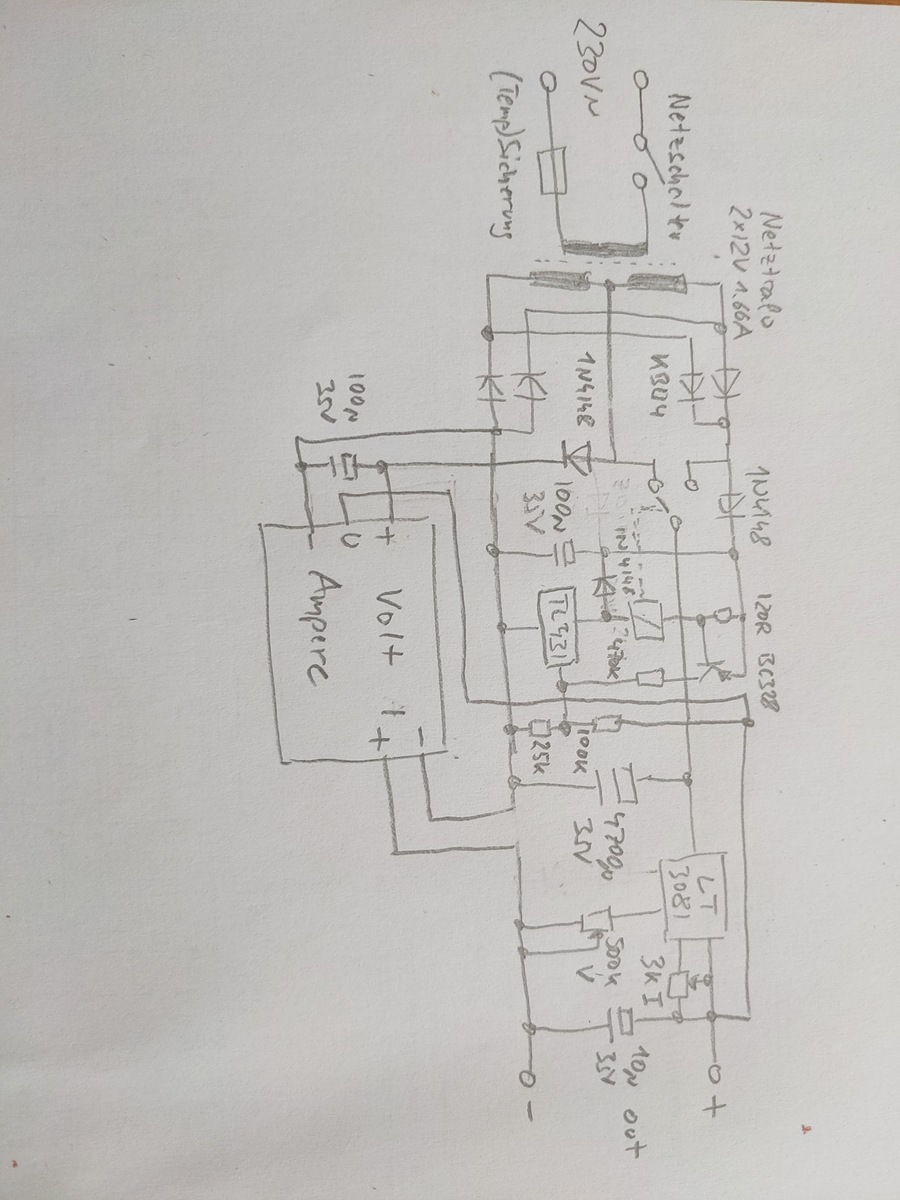 230V~
Netzschalter
(Temp)Sicherung
Netztrafo
2x12V 1.66A
KBU4
1N4148
1N4148
120R
BC328
100µ
35V
1N4148
TL431
470K
100K
25K
4700µ
35V
LT
3081
500K
V
3K I
10µ
35V
Out
+
-
100µ
35V
+
U
-
Volt
Ampere
-
+